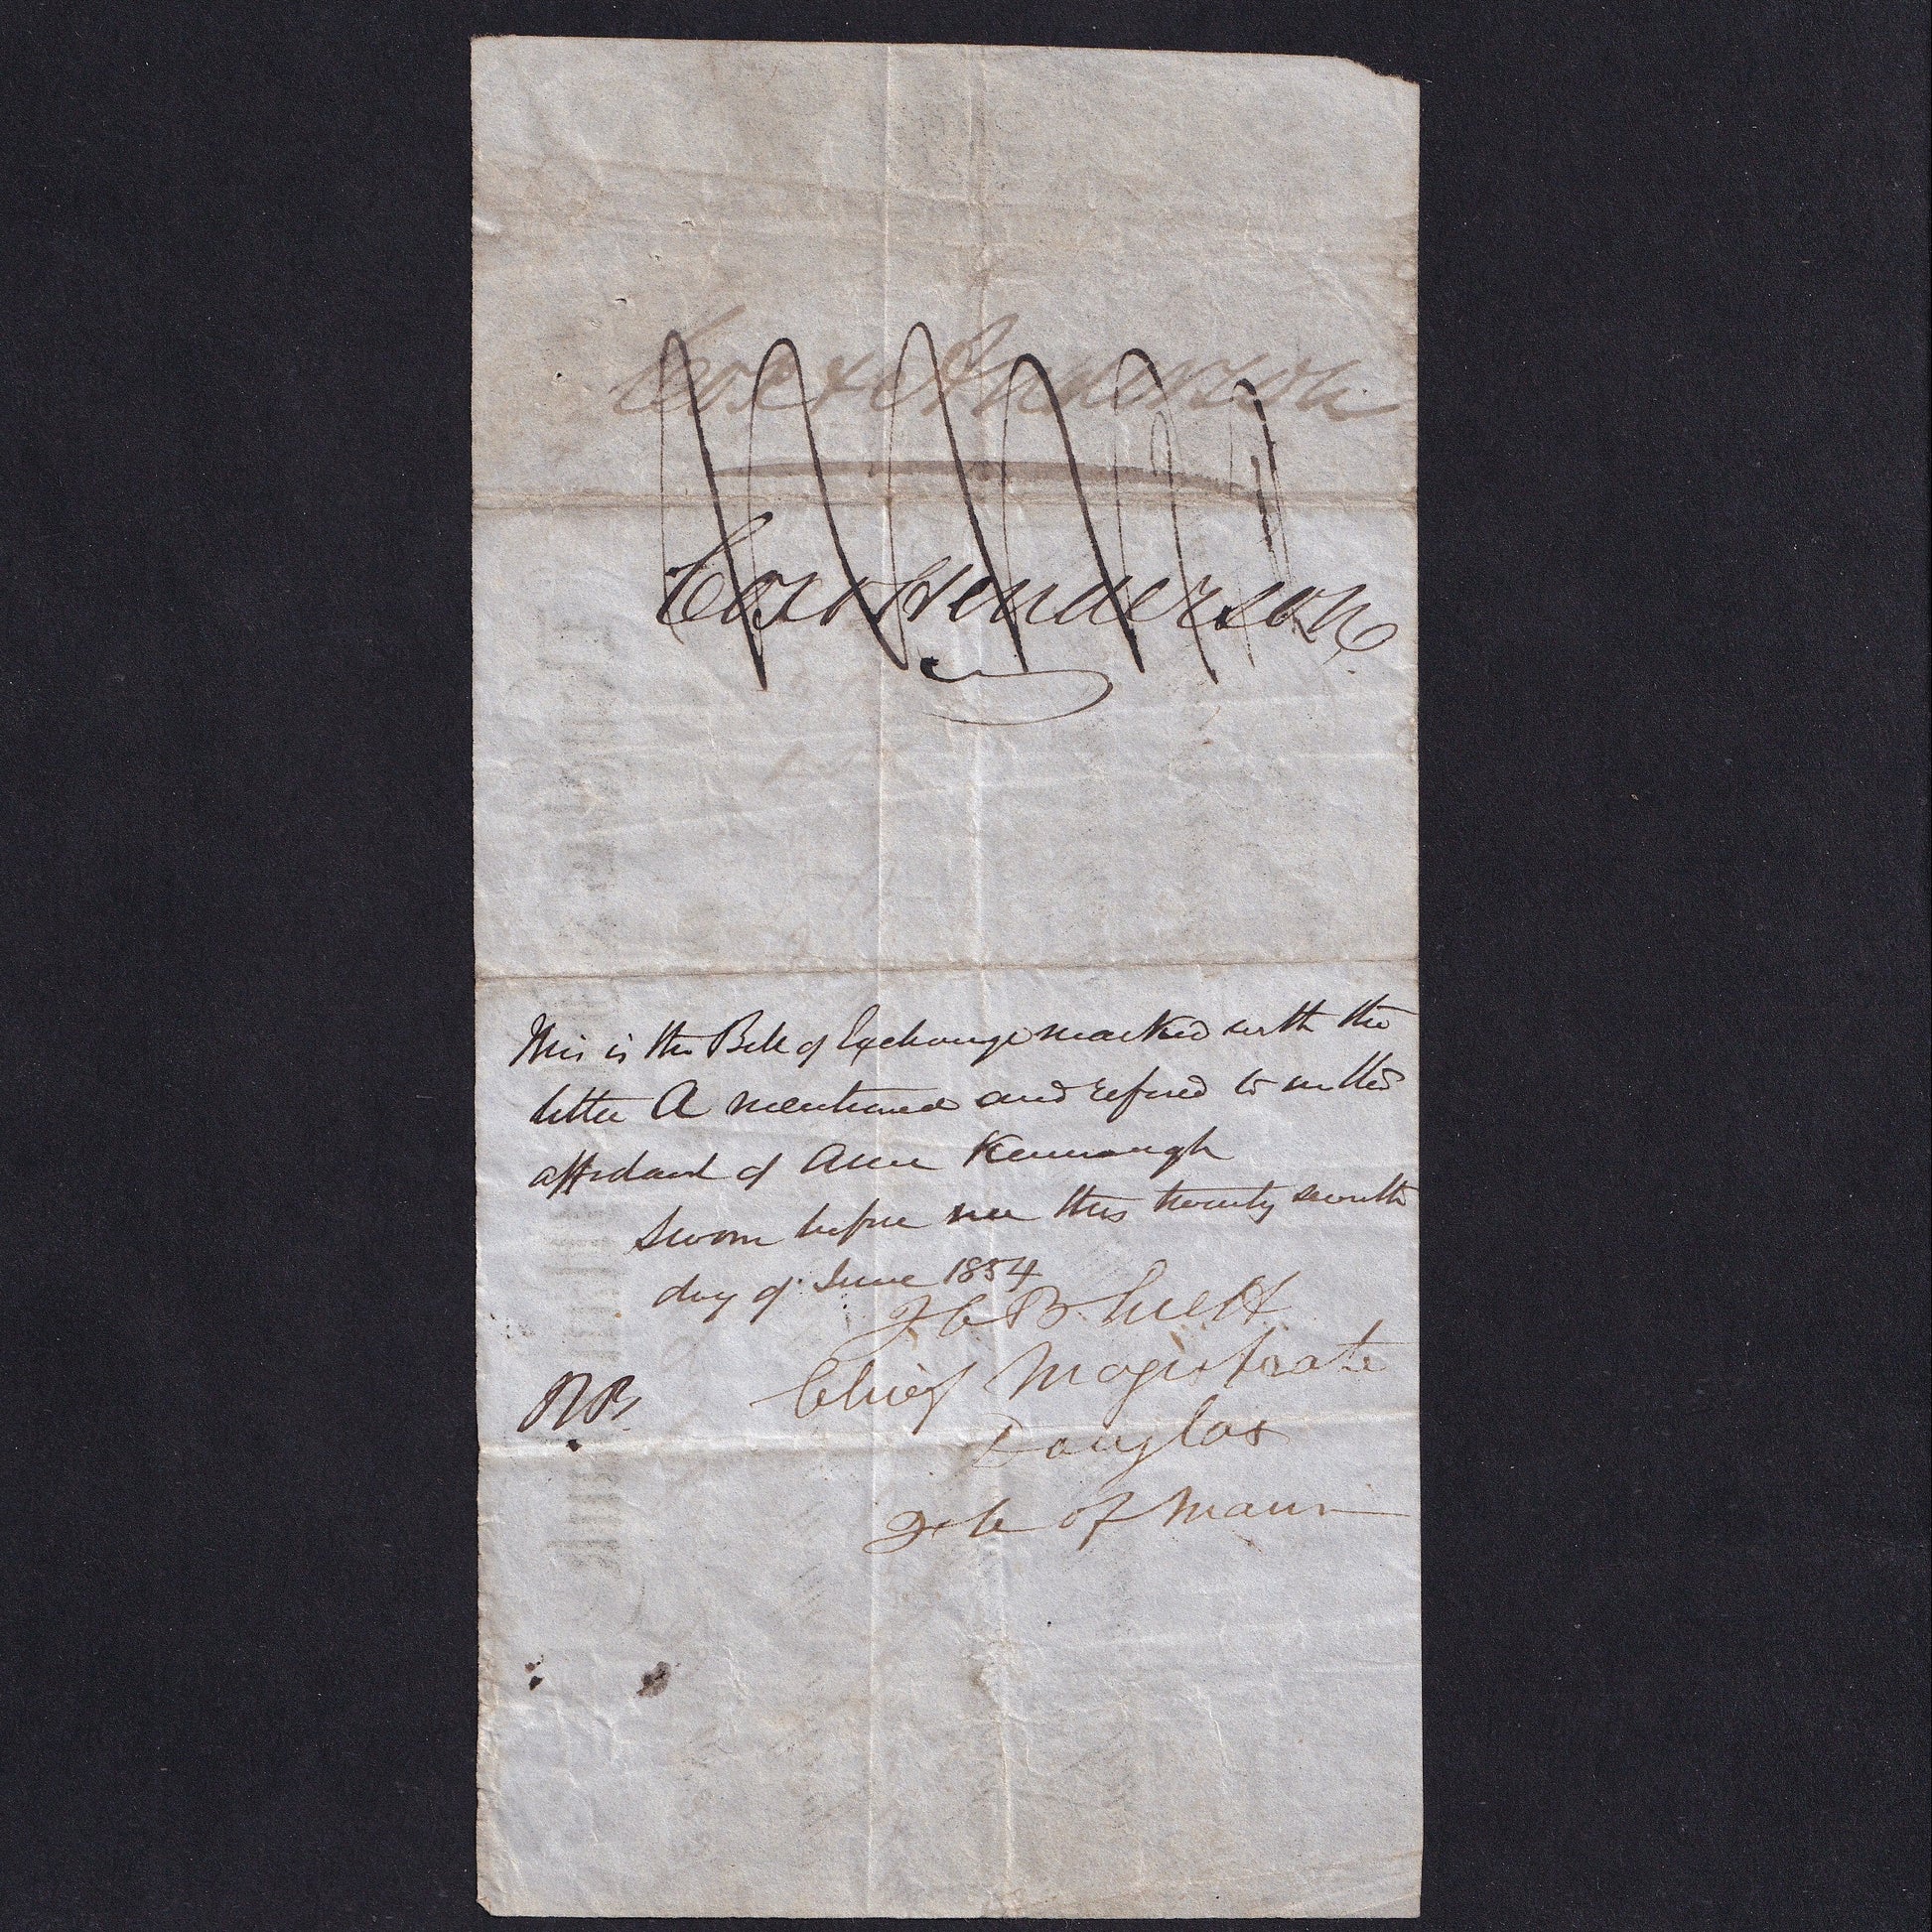 Cox & Anderson
Cox & Henderson
This is the Bill of Exchange marked with the
letter A mentioned and refered to in the
affidavit of Anne Kermeugh
Sworn before me this twenty seventh
day of June 1854
Chief Magistrate
Douglas
Isle of Mann